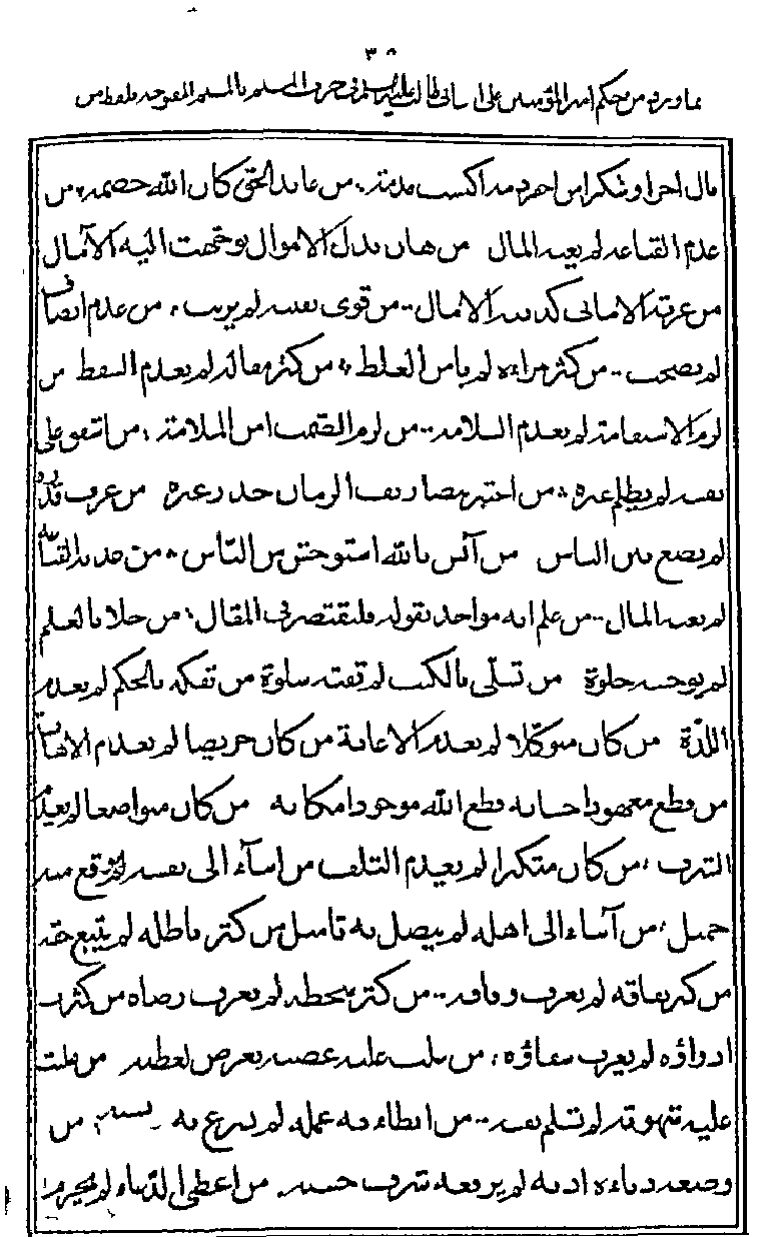 ٣٨
مما ورد من حكم امير المؤمنين علي بن ابي طالب عليه السلام في حرف الميم بالميم المفتوحة بلفظ من
نال اجرا وشكرا من احمدت مذمته من عاند الحق كان الله خصمه من
عدم القناعة لم يغنه المال من هان بذل الاموال توجهت اليه الآمال
من غرته الاماني كذبته الآمال من قوى نفسه لم من عدم انصافه
لم يصحب من كثر مراؤه لم يأمن الغلط من كثر مقاله لم يعدم السقط من
لزم الاستقامة لم يعدم السلامة من لزم الصمت امن الملامة من اشفق على
نفسه لم يظلم غيره من اختبر تصاريف الزمان حذر غيره من عرف قدره
لم يضع بين الناس من آنس بالله استوحش من الناس من عدته القناعة
لم يغنه المال من علم انه مواخذ بقوله فليقتصر في المقال من خلا بالعلم
لم يوحشه خلوة من تسلّى بالكتب لم تفته سلوة من تفكه بالحكم لم يعدم
اللذّة من كان متوكلا لم يعدم الاعانة من كان حريصا لم يعدم الاهانة
من قطع معهود احسانه قطع الله موجود امكانه من كان متواضعا لم يعدم
الشرف من كان متكبرا لم يعدم التلف من اساء الى نفسه لم يتوقع منه
جميل من آساء الى اهله لم يتصل به تاميل من كثر باطله لم يتبع حقه
من كثر نفاقه لم يعرف وفاقه من كثر سخطه لم يعرف رضاه من كثرت
ادواؤه لم يعرف شفاؤه من غلب عليه غضبه تعرض لعطبه من غلبت
عليه شهوته لم تسلم نفسه من ابطاء به عمله لم يسرع به نسبه من
وضعه دناءة ادبه لم يرفعه شرف حسبه من اعطي الدعاء لم يحرم